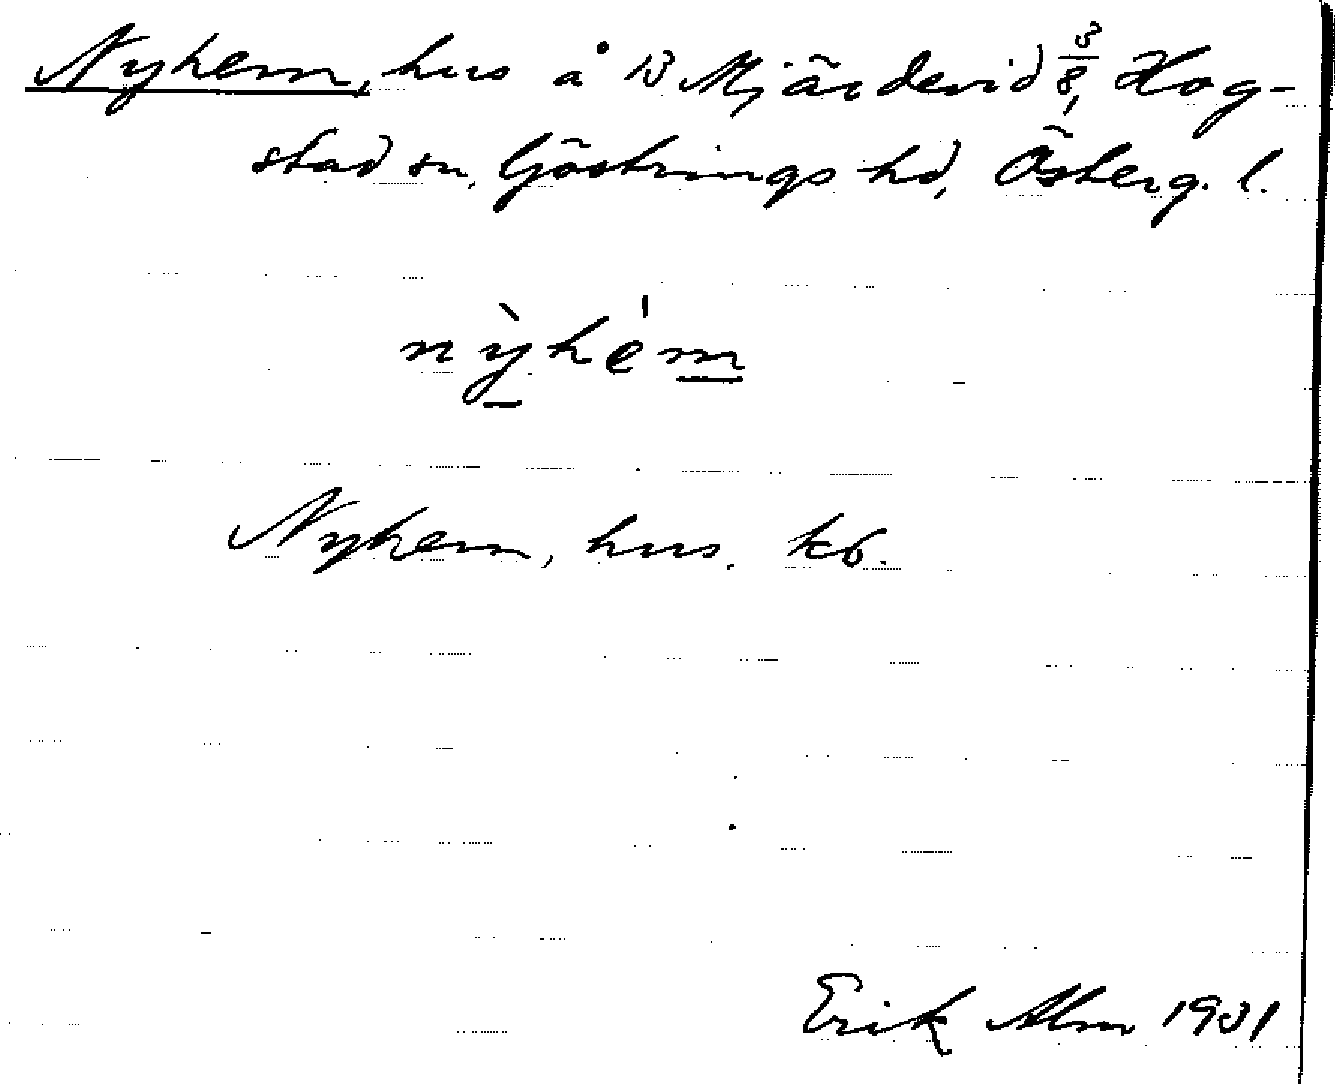 Nyhem, hus å 13 Mjärdevid 3/8, Hog-
stad sn, Göstrings hd, Österg. l.
nỳhém
Nyhem, hus. kb.
Erik Alm 1931